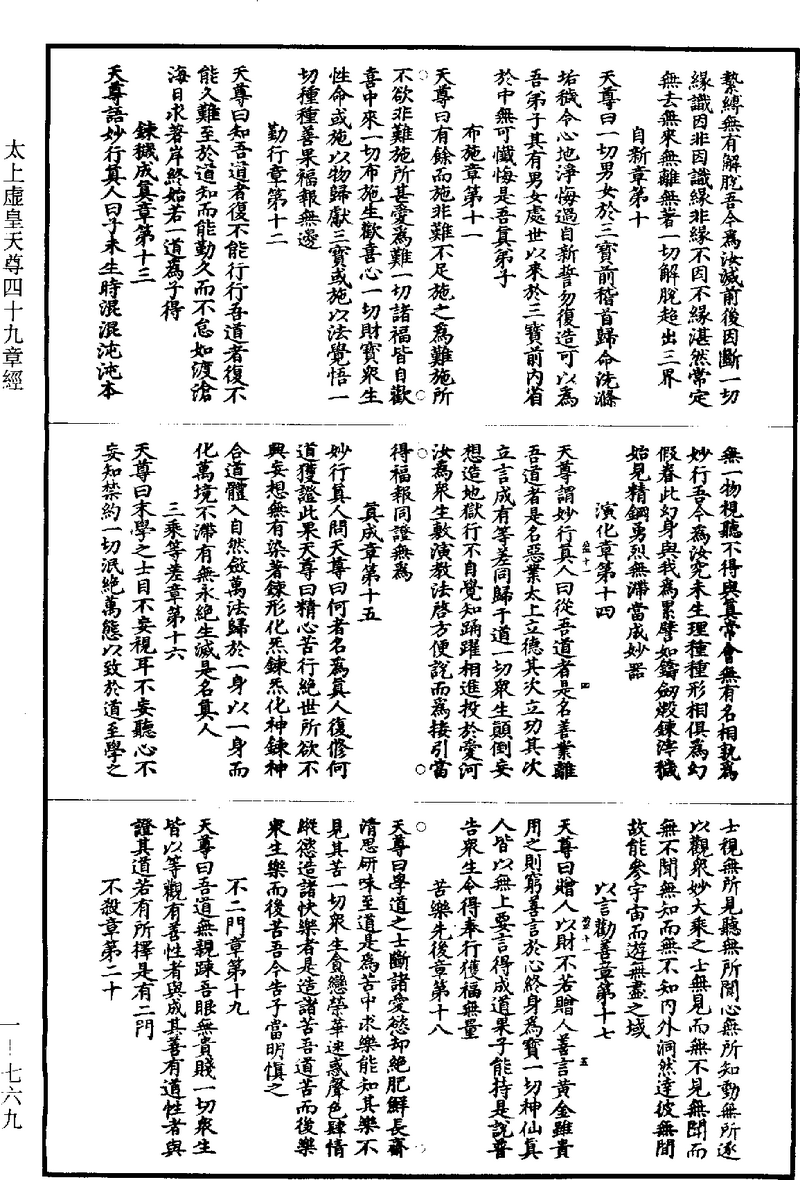 太上虛皇天尊四十九章經
一—七六九
縶縛無有解脫吾今為汝滅前後因斷一切
緣識因非因識緣非緣不因不緣湛然常定
無去無來無離無著一切解脫超出三界
自新章第十
天尊曰一切男女於三寶前稽首歸命洗滌
垢穢令心地淨悔過自新誓勿復造可以為
吾弟子其有男女處世以來於三寶前內省
於中無可懺悔是吾真弟子
布施章第十一
天尊曰有餘而施非難不足施之為難施所
不欲非難施所甚愛為難一切諸福皆自歡
喜中來一切布施生歡喜心一切財寶眾生
性命或施以物歸獻三寶或施以法覺悟一
切種種善果福報無邊
勤行章第十二
天尊曰知吾道者復不能行行吾道者復不
能久難至於道知而能勤久而不怠如渡滄
海日求著岸終始若一道為子得
鍊穢成真章第十三
天尊語妙行真人曰子未生時混混沌沌本
無一物視聽不得與真常會無有名相孰為
妙行吾今為汝究未生理種種形相俱為幻
假眷此幻身與我為累譬如鑄劒煅鍊滓穢
始見精鋼勇烈無滯當成妙器
演化章第十四
天尊謂妙行真人曰從吾道者是名善業離
吾道者是名惡業太上立德其次立功其次
立言成有等差同歸于道一切眾生顛倒妄
想造地獄行不自覺知踊躍相進投於愛河
汝為眾生敷演教法啓方便說而為接引當
得福報同證無為
真成章第十五
妙行真人問天尊曰何者名為真人復修何
道獲證此果天尊曰精心苦行絕世所欲不
興妄想無有染著鍊形化炁鍊炁化神鍊神
合道體入自然斂萬法歸於一身以一身而
化萬境不滯有無永絕生滅是名真人
三乘等差章第十六
天尊曰末學之士目不妄視耳不妄聽心不
妄知禁約一切泯絕萬態以致於道至學之
士視無所見聽無所聞心無所知動無所逐
以觀眾妙大乘之士無見而無不見無聞而
無不聞無知而無不知內外洞然達彼無間
故能參宇宙而遊無盡之域
以言勸善章第十七
天尊曰贈人以財不若贈人善言黃金雖貴
用之則窮善言於心終身為寶一切神仙真
人皆以無上要言得成道果子能持是說普
告眾生令得奉行獲福無量
苦樂先後章第十八
天尊曰學道之士斷諸愛慾却絕肥鮮長齋
清思研味至道是為苦中求樂能知其樂不
見其苦一切眾生貪戀榮華迷惑聲色肆情
縱慾造諸快樂者是造諸苦吾道苦而後樂
眾生樂而後苦吾今告子當明慎之
不二門章第十九
天尊曰吾道無親疎吾眼無貴賤一切眾生
皆以等觀有善性者與成其善有道性者與
證其道若有所擇是有二門
不殺章第二十